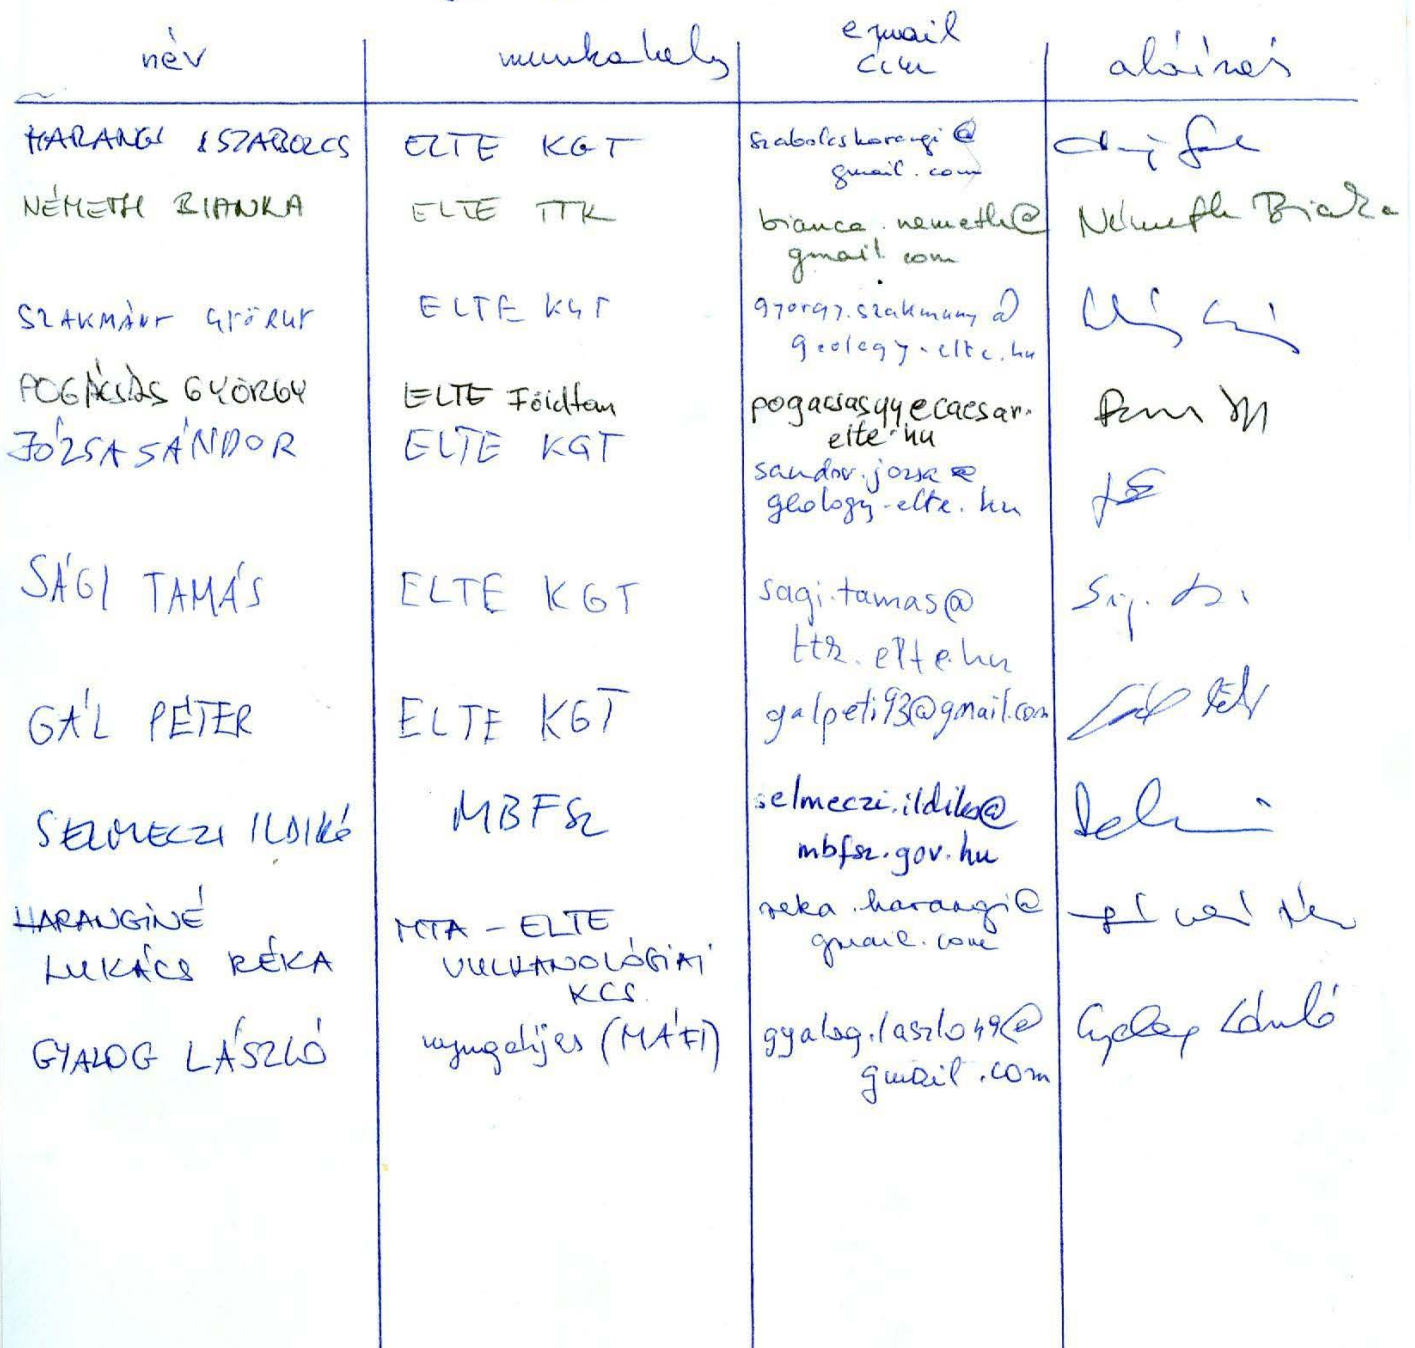 név munkahely email cím aláírás
HARANGI SZABOLCS ELTE KGT szabolcsharangi@
gmail.com
NÉMETH BIANKA ELTE TTK bianca.nemeth@ Németh Bianka
gmail.com
SZAKMÁNY GYÖRGY ELTE KGT gyorgy.szakmany@
geology.elte.hu
POGÁCSÁS GYÖRGY ELTE Földtan pogacsasgy@caesar.
elte.hu
JÓZSA SÁNDOR ELTE KGT
sandor.jozsa@
geology.elte.hu
SÁGI TAMÁS ELTE KGT sagi.tamas@
ttk.elte.hu
GÁL PÉTER ELTE KGT galpeti93@gmail.com Gál Péter
SELMECZI ILDIKÓ MBFSz selmeczi.ildiko@
mbfsz.gov.hu
HARANGINÉ MTA - ELTE reka.harangi@
LUKÁCS RÉKA VULKANOLÓGIAI gmail.com
KCS.
GYALOG LÁSZLÓ nyugdíjas (MÁFI) gyalog.laszlo49@ Gyalog László
gmail.com